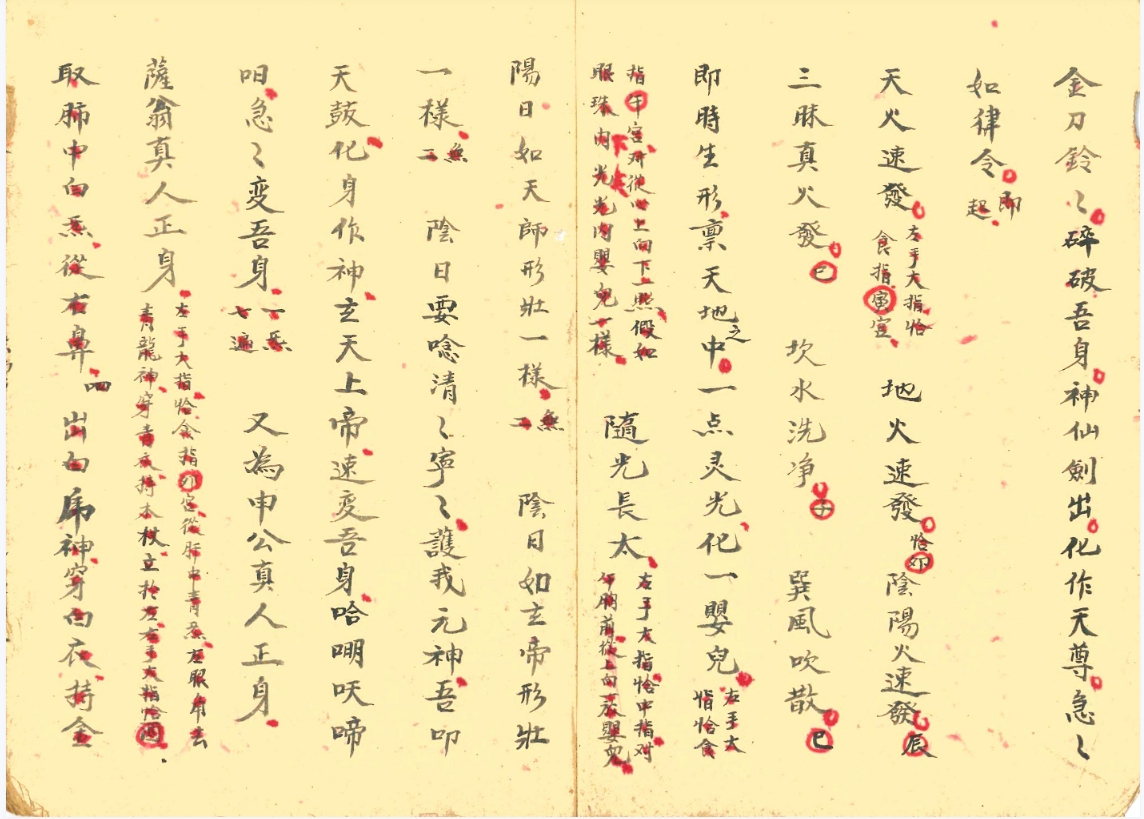 金刀鈴〻碎破吾身神仙劍出化作天尊急〻
如律令即起
天火速發左手大指恰食指寅宮地火速發恰卯陰陽火速發辰
三昧真火發巳坎水洗净子巽風吹散巳
即時生形禀天地之中一点灵光化一嬰兒右手大指恰食
指午宮 從 上向下一照假如眼珠内光光内嬰兒一樣隨光長太左手大指恰中指对午門前從上向下放嬰兒
陽日如天師形壯一樣一炁陰日如玄帝形壯
一樣一炁陰日要唸清〻寧〻護我元神吾叩
天鼓化身作神玄天上帝速変吾身哈唎吠啼
呾急〻変吾身一炁七遍又為申公真人正身
薩翁真人正身左手大指恰食指卯宮從肝中青炁左眼角出青龍神穿青衣持木杖立於左右手大指恰酉
取肺中白炁從右鼻四出白虎神穿白衣持金